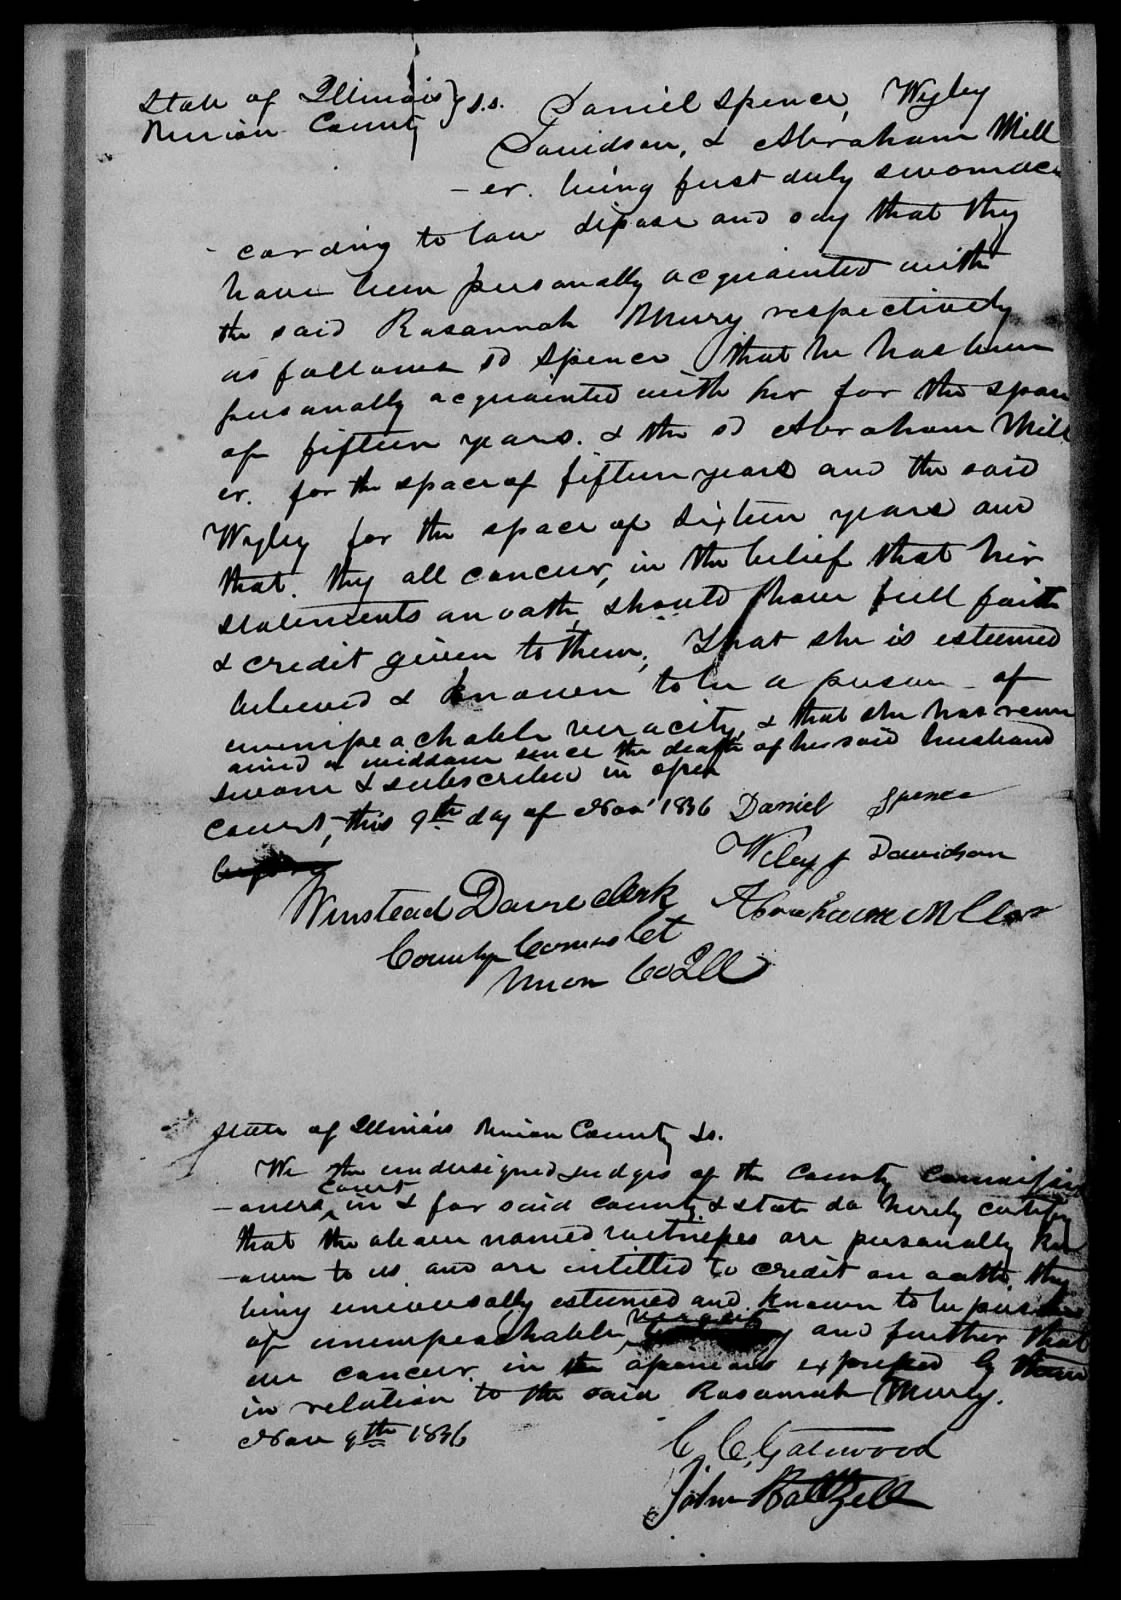 State of Illinois } s.s. Daniel Spence, Wyley
Union County
Davidson, & Abraham Mill
-er. being first duly sworn ac
-cording to law depose and say that they
have been personally acquainted with
the said Rosannah Murry respectively
as follows sd Spence that he has been
personally acquainted with her for the space
of fifteen years. & the sd Abraham Mill
er. for the space of fifteen years and the said
Wyley for the space of sixteen years and
that they all concur, in the belief that her
statements on oath, should have full faith
& credit given to them, That she is esteemed
believed & known to be a person of
unimpeachable veracity, & that she has rem
ained a widdow since the death of her said husband
sworn & subscribed in open
court, this 9th day of Nov 1836 Daniel Spence
Wiley J Davidson
Winstead Davie clerk Abraham Miller
County Comrs Ct
Union Co Ill
State of Illinois Union County Ss.
We the undersigned Judges of the County Commission
-oners court in & for said county & state do hereby certify
that the above named witnesses are personally kn
-own to us and are intitled to credit on oath, they
being universally esteemed and known to be persons
of unimpeachable veracity and further that
we concur in the opinions expressed by them
in relation to the said Rosannah Murry.
Nov 9th 1836
C. C. Gatewood
John Baltzell